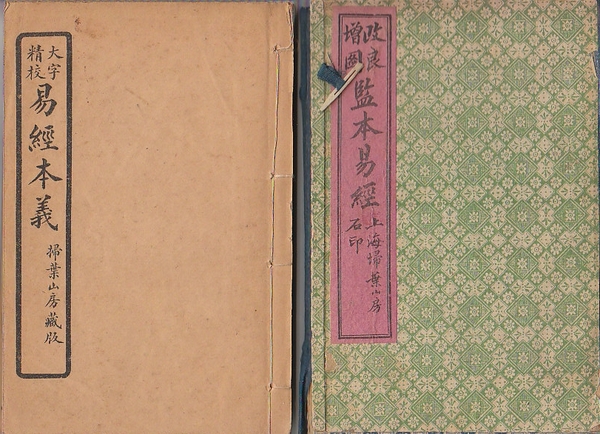 大字
精校
易經本義
掃葉山房藏版
改良
增圖
監本易經
上海掃葉山房
石印